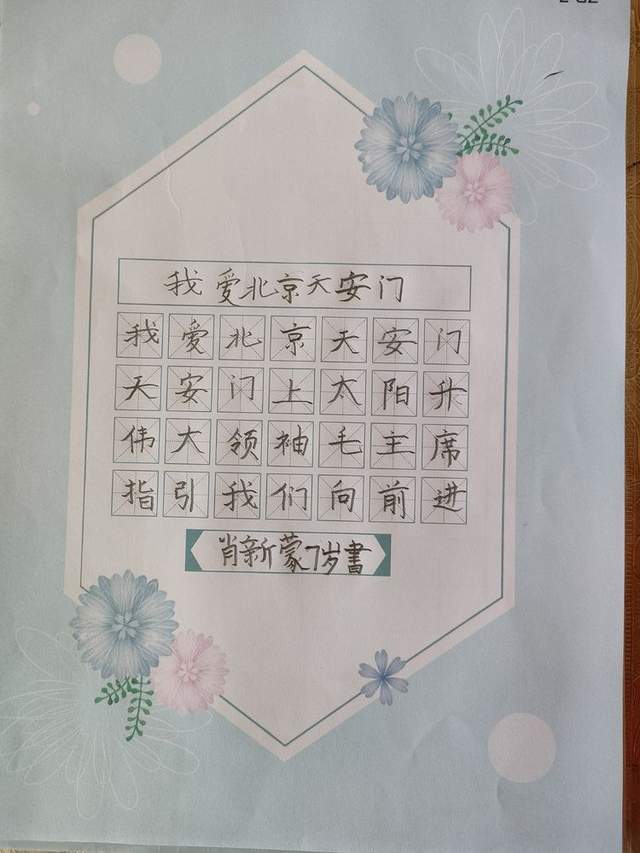 我爱北京天安门
我爱北京天安门
天安门上太阳升
伟大领袖毛主席
指引我们向前进
肖新蒙7岁書